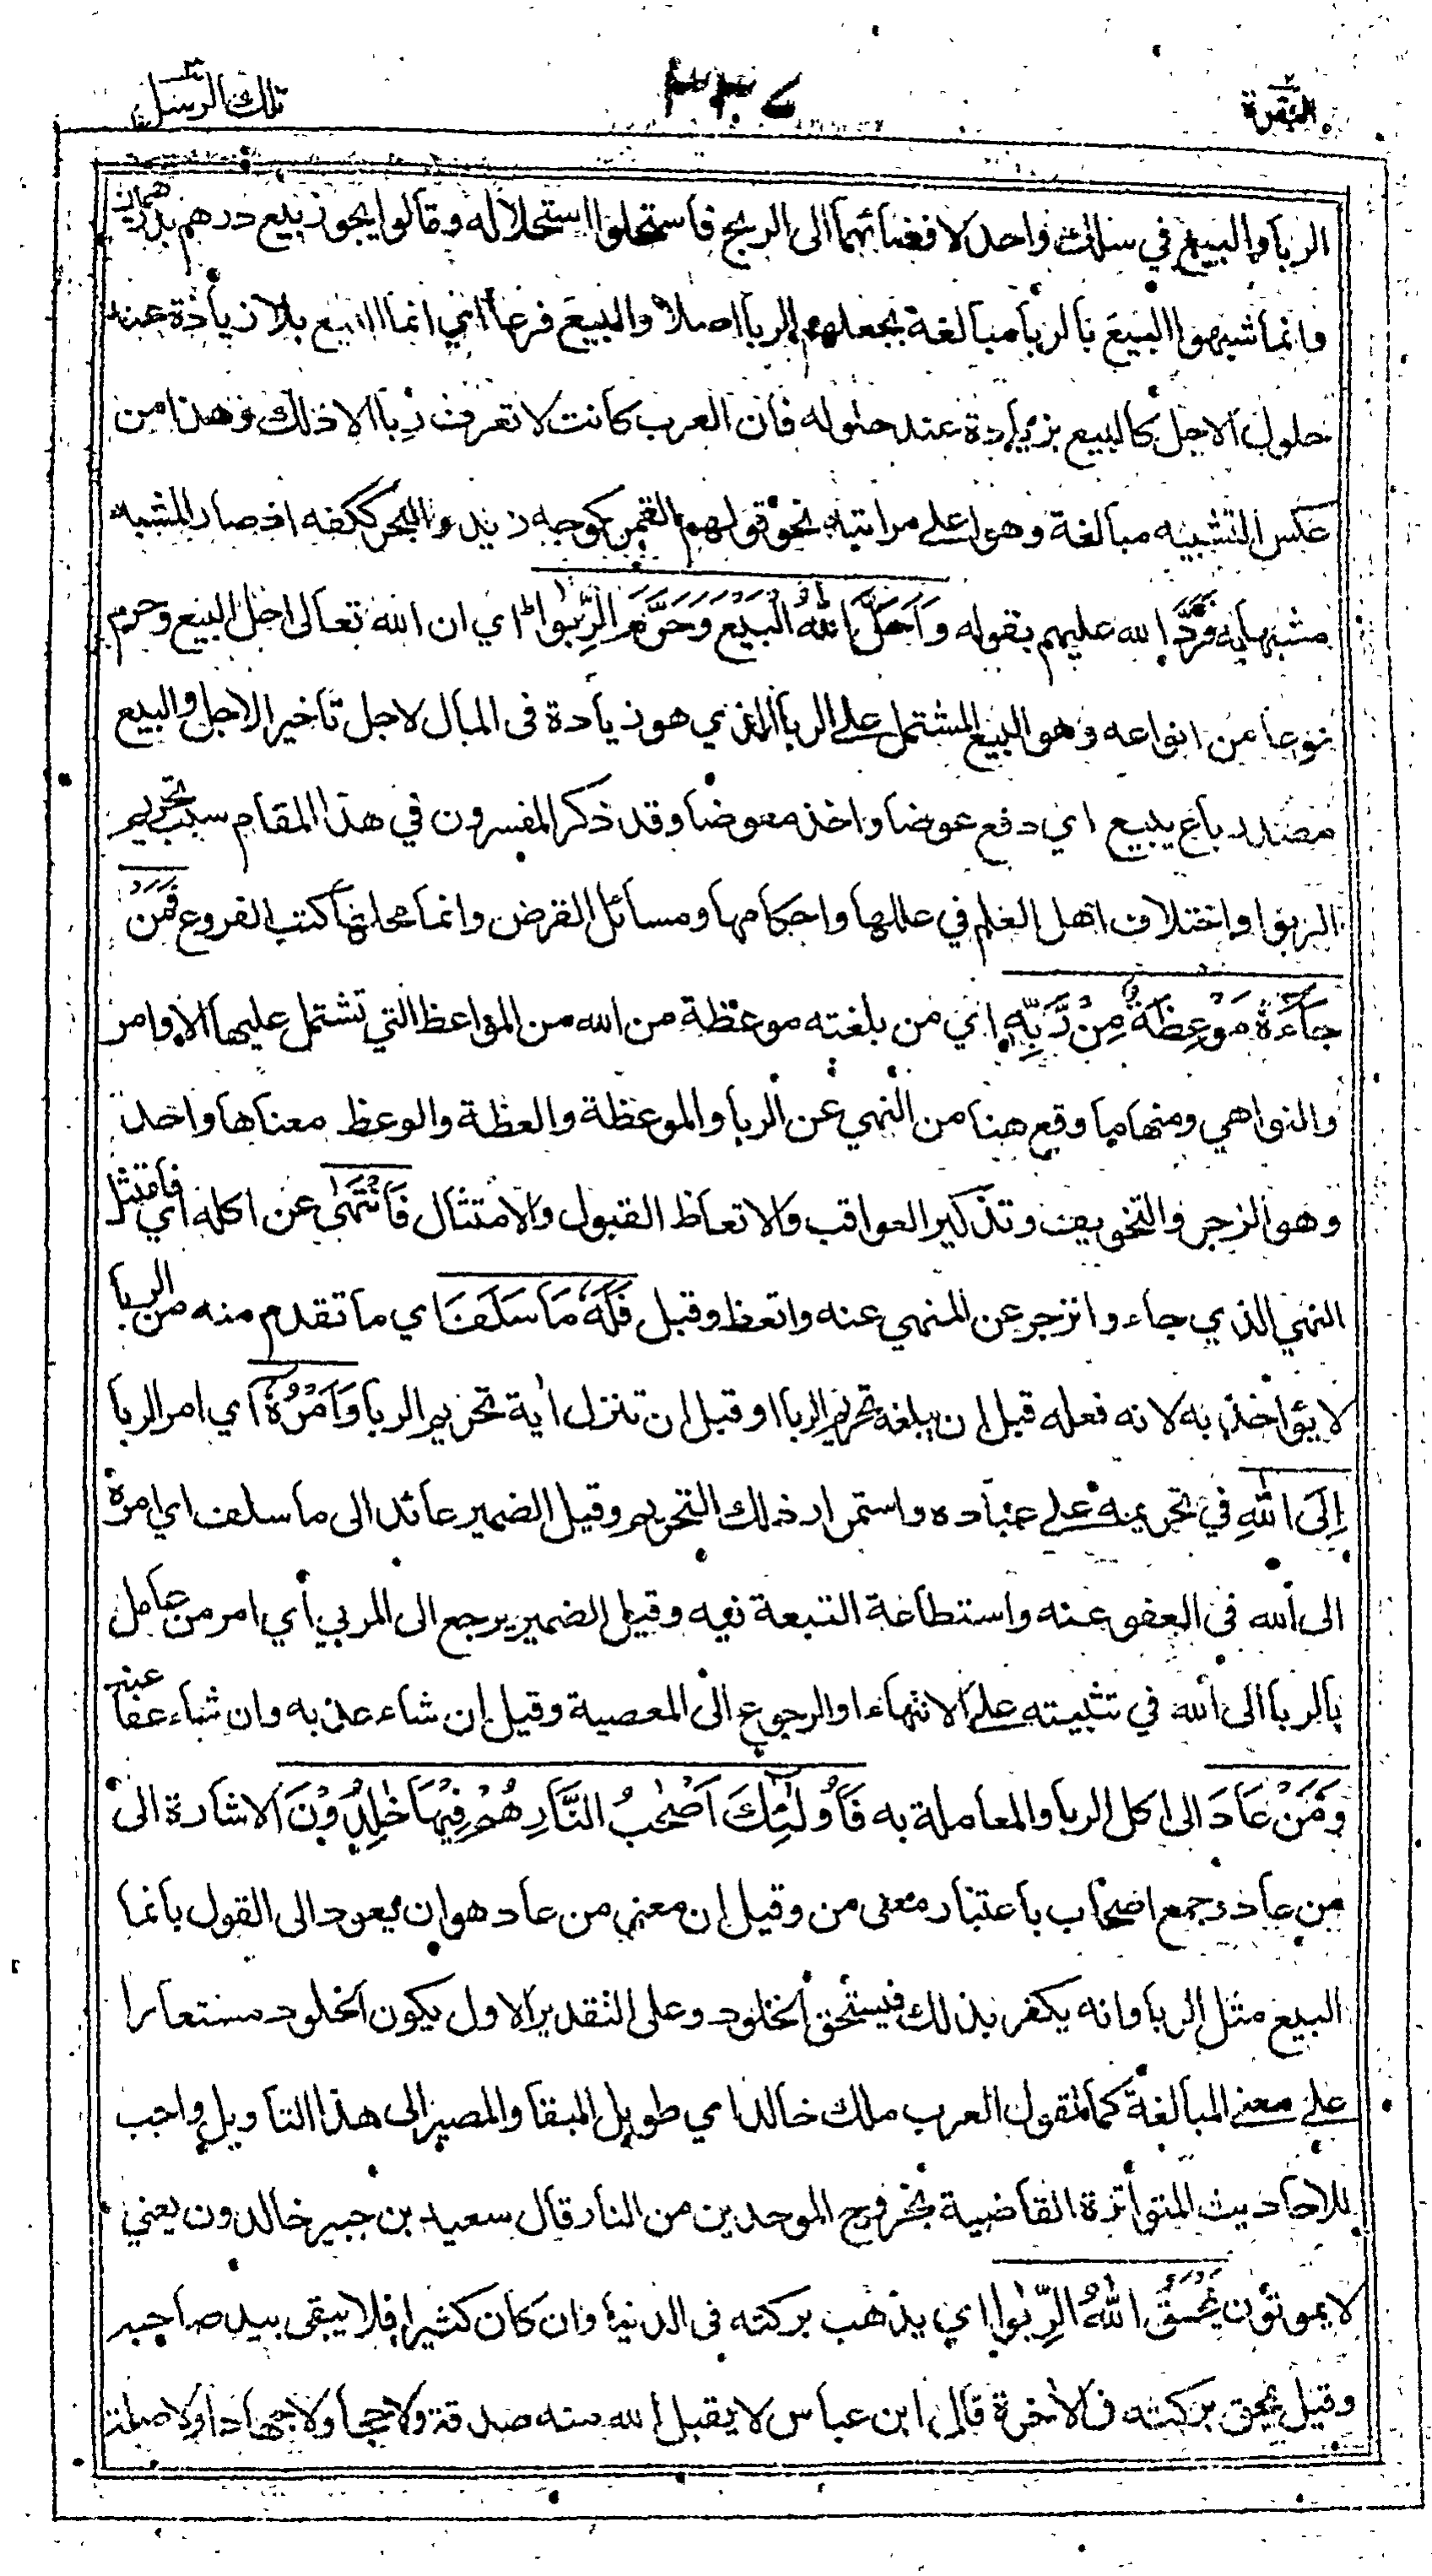 البقرة ٢
٣٣٤
تلك الرسل ٣
الربا والبيع في سلك واحد لافضائهما الى الربح فاستحلوا استحلاله وقالوا يجوز بيع درهم بدرهمين
وانما شبهوا البيع بالربا مبالغة بجعلهم الربا اصلا والبيع فرعا اي انما البيع بلا زيادة عند
حلول الاجل كالبيع بزيادة عند حلوله فان العرب كانت لا تعرف ربا الا ذلك وهذا من
عكس التشبيه مبالغة وهو اعلى مراتبه نحو قولهم القمر كوجه زيد والبحر ككفه اذ صار المشبه
مشبها به فرد الله عليهم بقوله وَاَحَلَّ اللّٰهُ الْبَيْعَ وَحَرَّمَ الرِّبٰوا ط اي ان الله تعالى احل البيع وحرم
نوعا من انواعه وهو البيع المشتمل على الربا الذي هو زيادة في المال لاجل تأخير الاجل والبيع
مصدر باع يبيع اي دفع عوضا واخذ معوضا وقد ذكر المفسرون في هذا المقام سبب تحريم
الربوا واختلاف اهل العلم في عللها واحكامها ومسائل القرض وانما محلها كتب الفروع فَمَنْ
جَآءَهٗ مَوْعِظَةٌ مِنْ رَّبِّهٖ اي من بلغته موعظة من الله من المواعظ التي تشتمل عليها الاوامر
والنواهي ومنها ما وقع هنا من النهي عن الربا والموعظة والعظة والوعظ معناها واحد
وهو الزجر والتخويف وتذكير العواقب والاتعاظ القبول والامتثال فَانْتَهٰى عن اكله اي فامتثل
النهي الذي جاء وانزجر عن المنهي عنه واتعظ وقبل فَلَهٗ مَا سَلَفَ اي ما تقدم منه من الربا
لا يؤاخذ به لانه فعله قبل ان يبلغه تحريم الربا او قبل ان تنزل اية تحريم الربا وَاَمْرُهٗ اي امر الربا
اِلَى اللّٰهِ في تحريمه على عباده واستمرار ذلك التحريم وقيل الضمير عائد الى ما سلف اي امره
الى الله في العفو عنه واستطاعة التبعة فيه وقيل الضمير يرجع الى المربي اي امر من عامل
بالربا الى الله في تثبيته على الانتهاء او الرجوع الى المعصية وقيل ان شاء عذبه وان شاء عفا عنه
وَمَنْ عَادَ الى اكل الربا والمعاملة به فَاُولٰٓئِكَ اَصْحٰبُ النَّارِ هُمْ فِيْهَا خٰلِدُوْنَ الاشارة الى
من عاد وجمع اصحاب باعتبار معنى من وقيل ان معنى من عاد هو ان يعود الى القول بانما
البيع مثل الربا وانه يكفر بذلك فيستحق الخلود وعلى التقدير الاول يكون الخلود مستعارا
على معنى المبالغة كما تقول العرب ملك خالد اي طويل البقا والمصير الى هذا التاويل واجب
للاحاديث المتواترة القاضية بخروج الموحدين من النار قال سعيد بن جبير خالدون يعني
لا يموتون يَمْحَقُ اللّٰهُ الرِّبٰوا اي يذهب بركته في الدنيا وان كان كثيرا فلا يبقى بيد صاحبه
وقيل يمحق بركته في الاخرة قال ابن عباس لا يقبل الله منه صدقة ولا حجا ولا جهادا ولا صلة